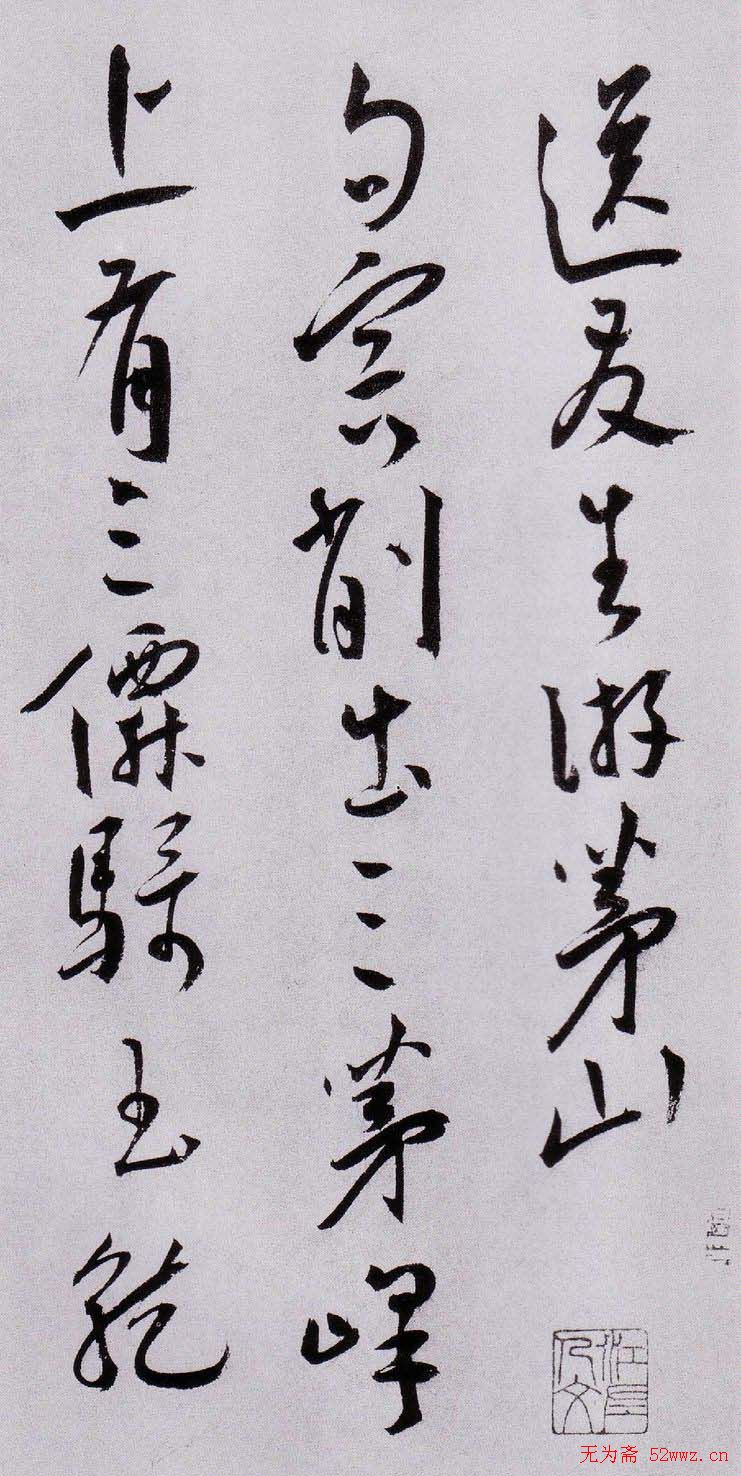 送友生游茅山
句容削出三茅峰
上有三僊騎玉龍
无为斋 52wwz.cn